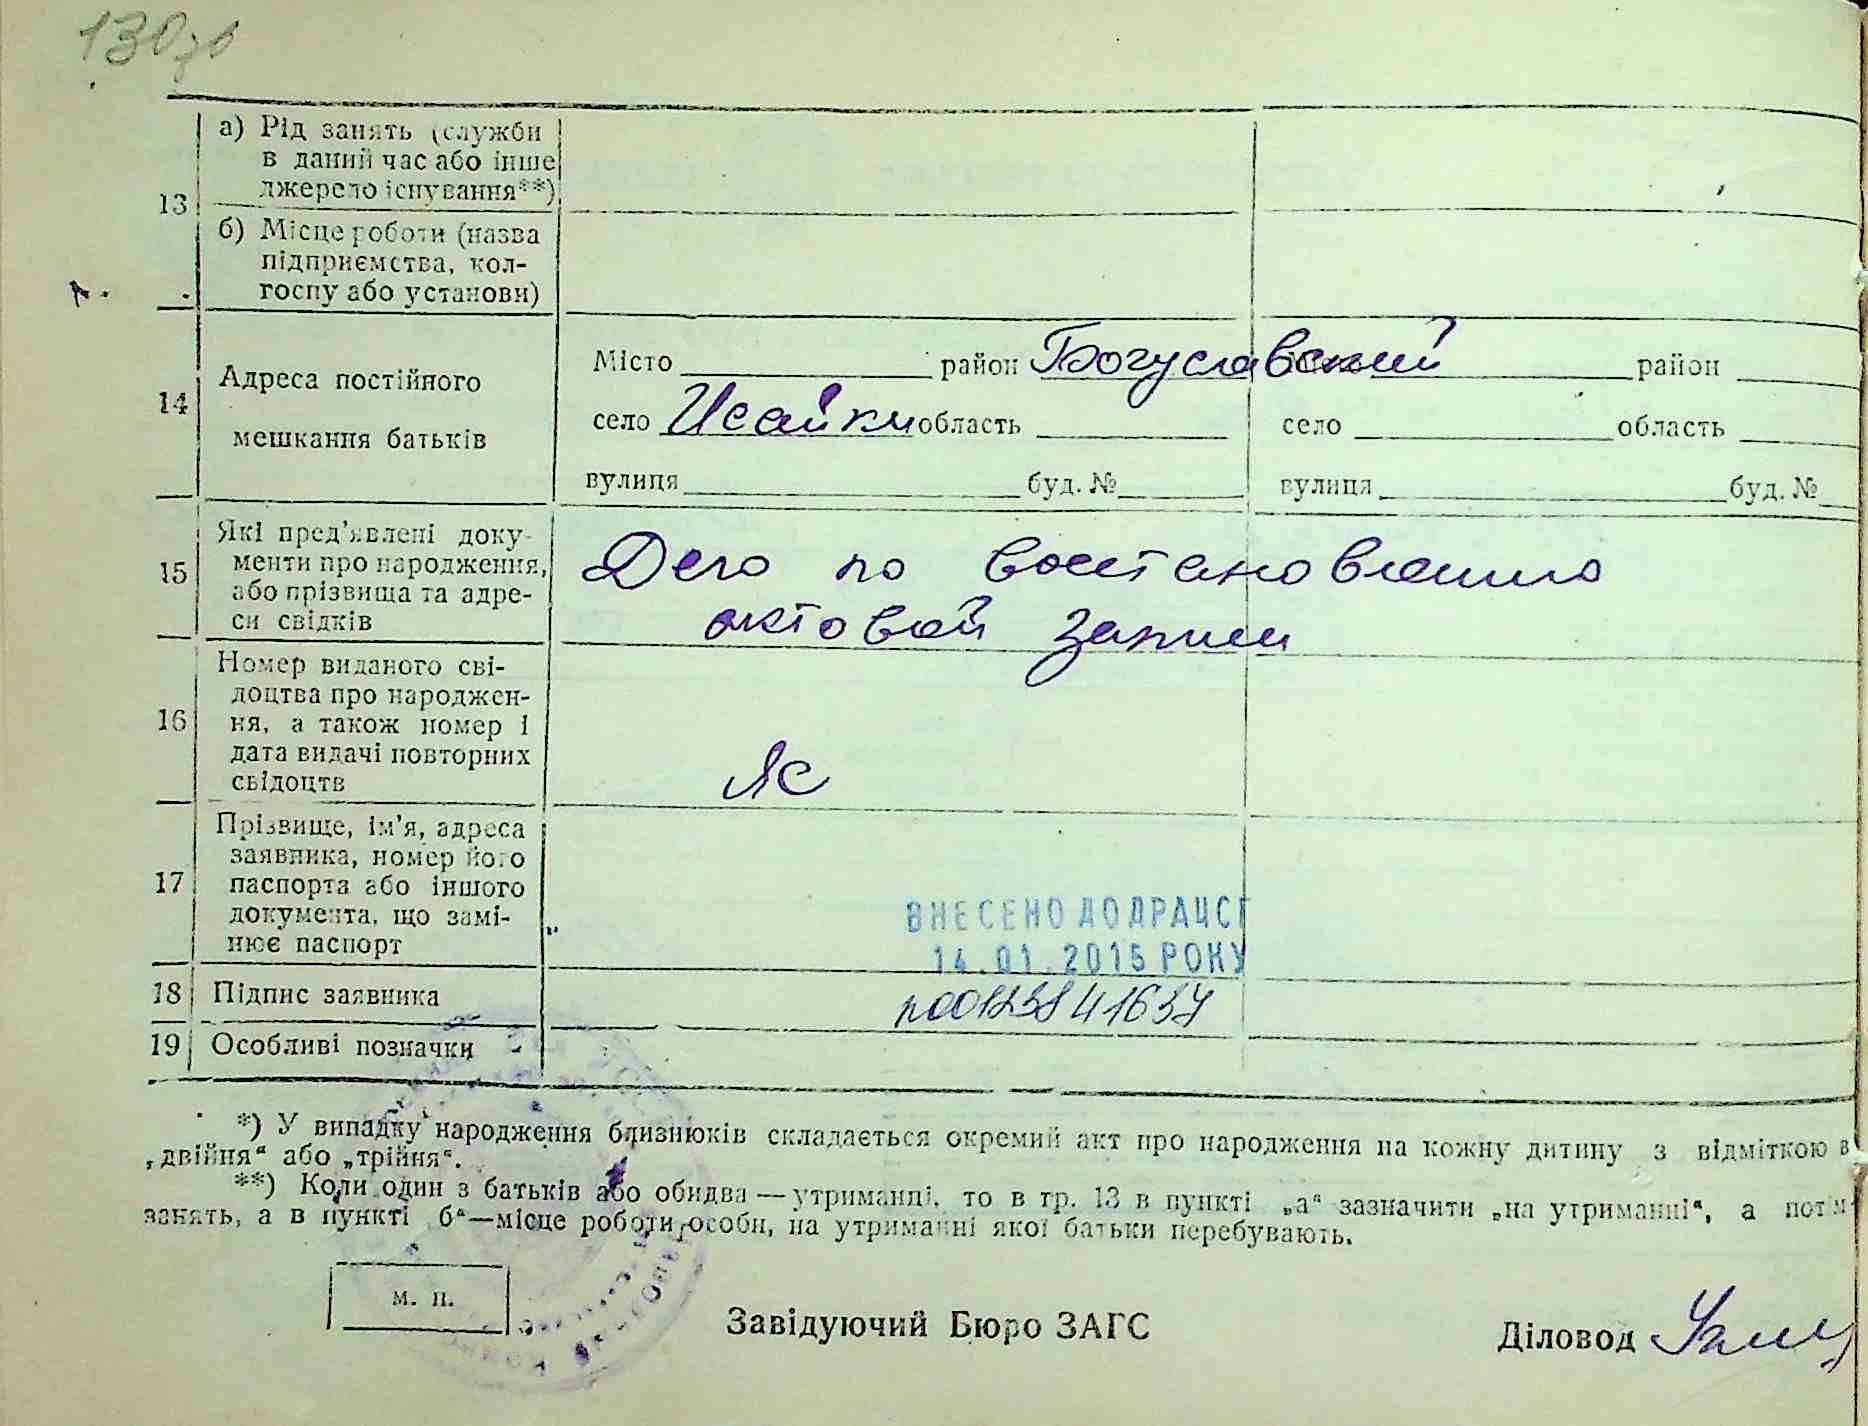 130зв
а) Рід занять (служби
в даний час або інше
джерело існування**)
13
б) Місце роботи (назва
підприємства, кол-
госпу або установи)
14
Адреса постійного
мешкання батьків
Місто район Богуславский район
село Исайки область село область
вулиця буд. № вулиця буд. №
15
Які пред'явлені доку-
менти про народження,
або прізвища та адре-
си свідків
Дело по восстановлению
актовой записи
16
Номер виданого сві-
доцтва про народжен-
ня, а також номер і
дата видачі повторних
свідоцтв
ЯС
17
Прізвище, ім'я, адреса
заявника, номер його
паспорта або іншого
документа, що замі-
нює паспорт
ВНЕСЕНО ДО ДРАЦСГ
14.01.2015 РОКУ
18 Підпис заявника
19 Особливі позначки
*) У випадку народження близнюків складається окремий акт про народження на кожну дитину з відміткою в
„двійня“ або „трійня“.
**) Коли один з батьків або обидва — утриманці, то в гр. 13 в пункті „а“ зазначити „на утриманні“, а потім
занять, а в пункті б“—місце роботи особи, на утриманні якої батьки перебувають.
м. п.
Завідуючий Бюро ЗАГС
Діловод